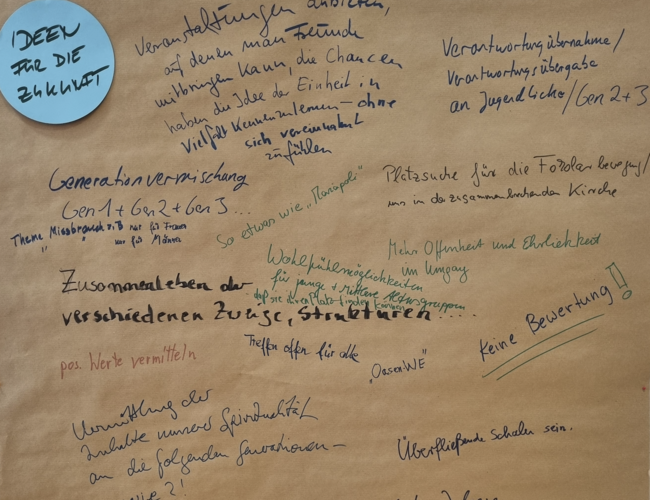 IDEEN
FÜR DIE
ZUKUNFT
Veranstaltungen anbieten,
auf denen man Freunde
mitbringen kann, die Chancen
haben die Idee der Einheit in
Vielfalt kennenzulernen – ohne
sich vereinnahmt
zu fühlen
Verantwortung übernahme/
Verantwortungsübergabe
an Jugendliche/Gen 2+3
Generationvermischung
Gen 1 + Gen 2 + Gen 3 ...
Thema Missbrauch z.B. nur für Frauen
" " nur für Männer
So etwas wie „Mariapoli"
Platzsuche für die Fokolarbewegung/
uns in der zusammenbrechenden Kirche
Mehr Offenheit und Ehrlichkeit
im Umgang
Wohlfühlmöglichkeiten
für junge + mittlere Altersgruppen
daß sie ihren Platz finden können
Zusammenleben der
verschiedenen Zweige, Strukturen ....
Keine Bewertung!
pos. Werte vermitteln
Treffen offen für alle
„OasenWE"
Vermittlung der
Inhalte unserer Spiritualität
an die folgenden Generationen –
wie?!
Überfließende Schalen sein.